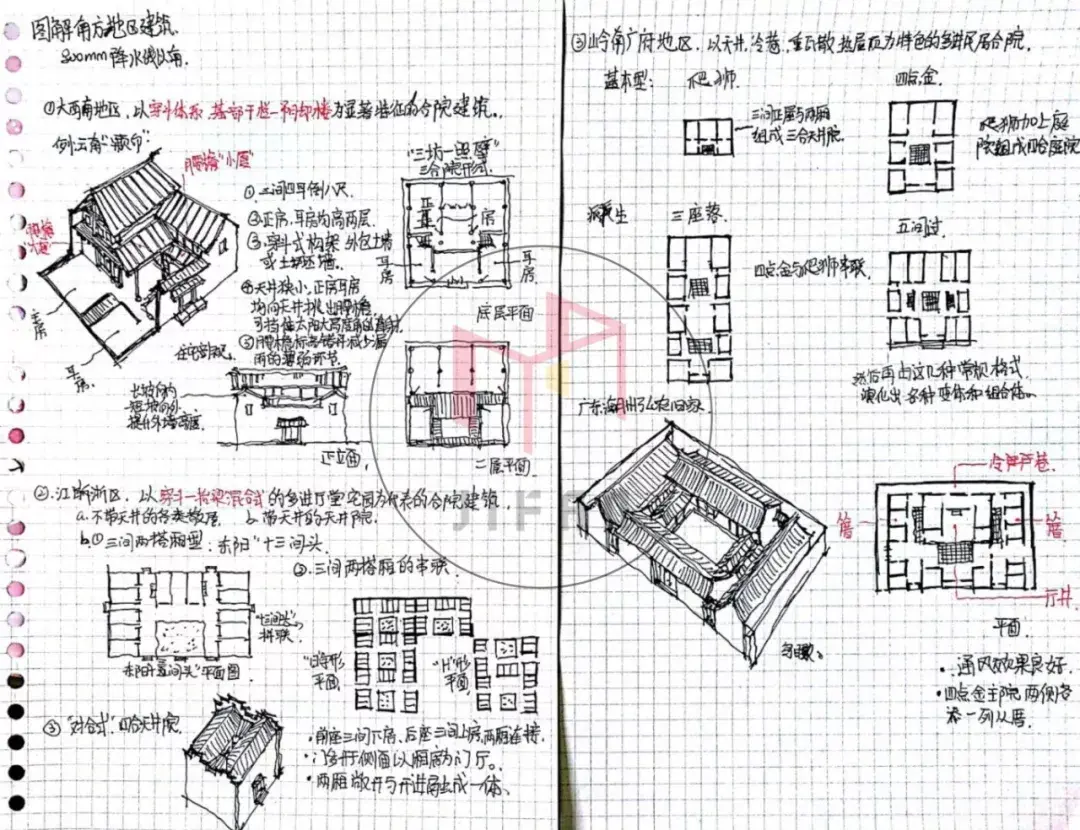 图解南方地区建筑.
800mm降水线以南.
①大西南地区,以穿斗体系,基部干栏—不同却楼为显著特征的合院建筑。
例:云南"一颗印"
腰檐"小厦"
"三坊一照壁"
三合院形式.
①三间四耳倒八尺
②正房,耳房均高两层.
③穿斗式构架 外包土墙
或土坯墙.
④天井狭小,正房耳房
均向天井挑出腰檐
可挡住太阳大高度角的直射
雨的薄弱环节.
正房
耳房
耳房
耳房
正房
底层平面
住宅剖视.
长坡向内
短坡向外
提升外墙高度
正立面
二层平面
②.江浙区,以穿斗—抬梁混合式的多进厅堂宅园为代表的合院建筑
a.不带天井的各类散屋. b.带天井的天井院.
b.①三间两搭厢型:东阳"十三间头.
②.三间两搭厢的串联
"十三间头"
拼联
平面图
"日"字形
平面.
"H"形
平面.
③"对合式"四合天井院.
·前座三间下房,后座三间上房,两厢连接.
·门多开于侧面以厢廊为门厅。
·两厢敞开与天井连成一体、
③岭南广府地区,以天井,冷巷,重瓦散热屋顶为特色的多进民居合院.
基本型: 爬狮 四点金
三间正屋与两厢
组成三合天井院.
爬狮加上庭
院组成四合庭院
派生 三座落 五间过
四点金与爬狮串联.
然后再由这几种常规格式
演化出各种变体和组合体。
广东潮州弘农旧家
鸟瞰.
冷巷
厝
厝
厅井
平面.
·通风效果良好.
·四点金主院两侧各
添一列从厝.
JIFF